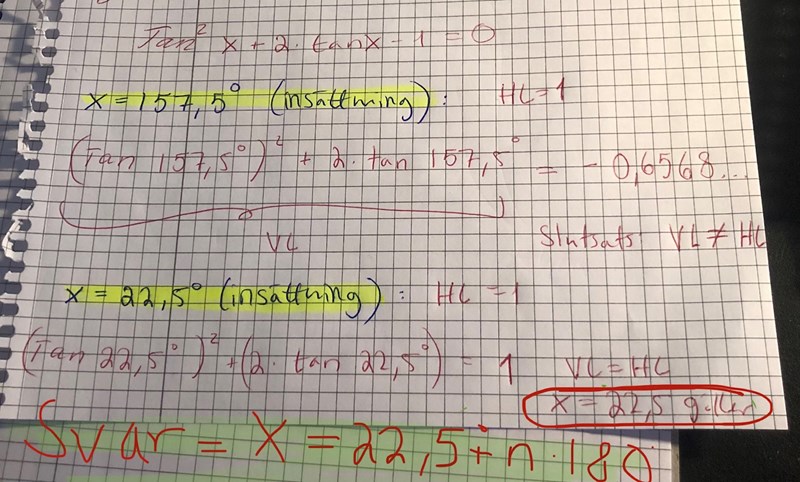 Tan² x + 2 · tanx - 1 = 0
x = 157,5° (insättning) : HL = 1
(Tan 157,5°)² + 2 · tan 157,5° = - 0,6568...
VL
Slutsats VL ≠ HL
x = 22,5° (insättning) : HL = 1
(Tan 22,5°)² + (2 · tan 22,5°) = 1 VL = HL
x = 22,5 gäller
Svar = X = 22,5 + n · 180